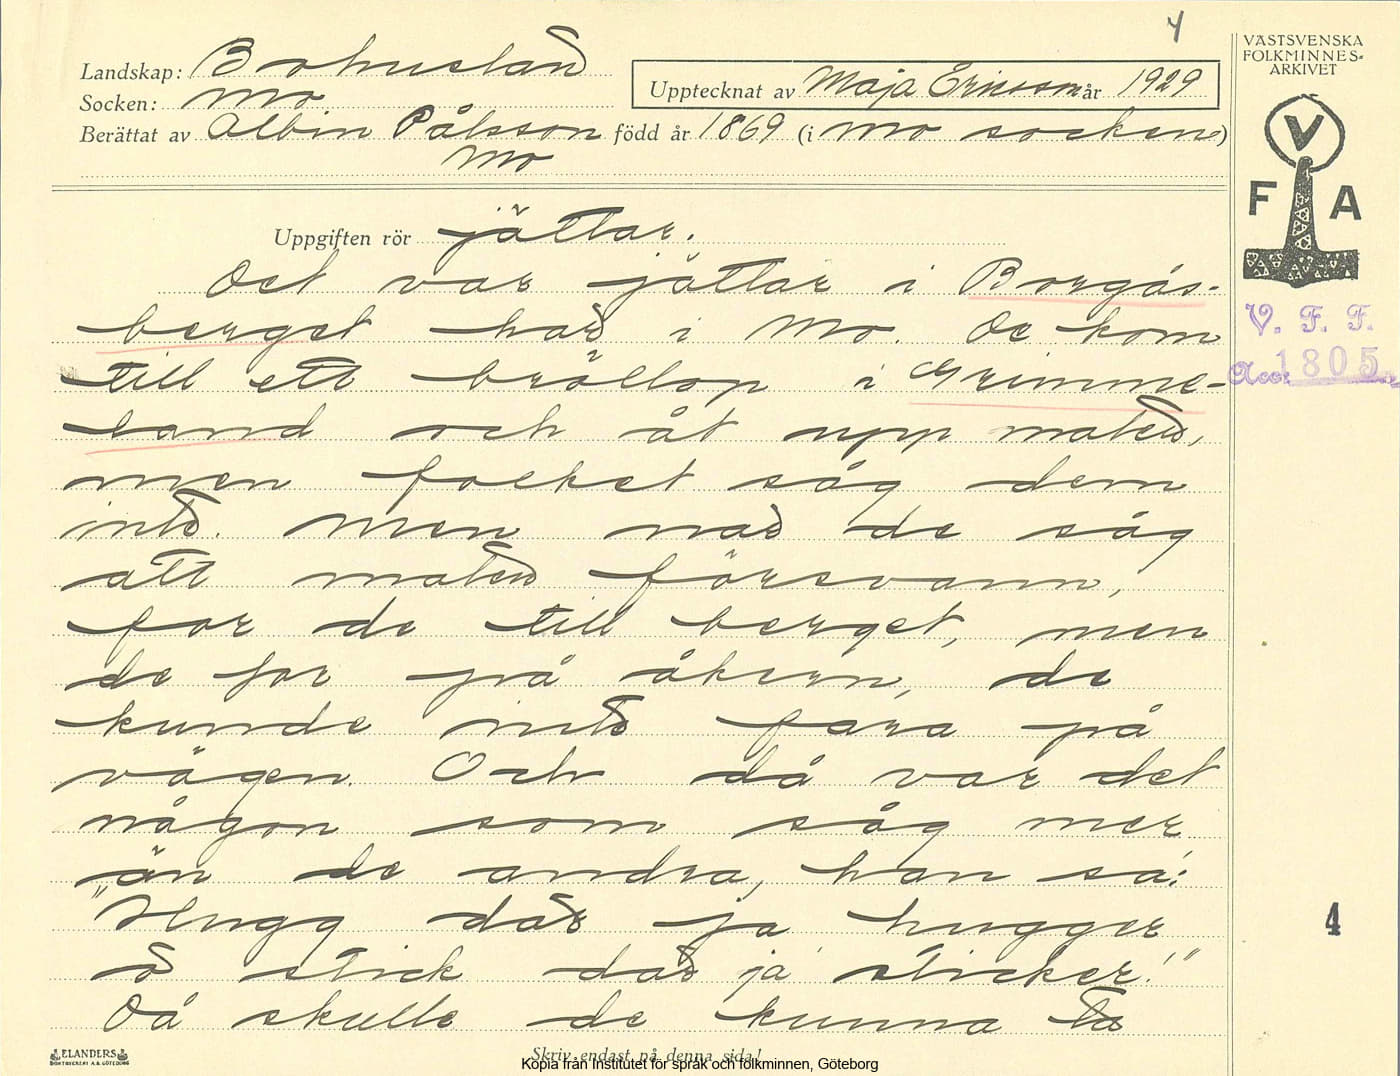 4
Landskap: Bohuslän
Socken: Mo
Upptecknat av Maja Ericsson år 1929
Berättat av Albin Pålsson född år 1869 (i Mo socken)
Mo
VÄSTSVENSKA
FOLKMINNES-
ARKIVET
V
F A
Uppgiften rör jättar.
Det var jättar i Borgås-
berget här i Mo. De kom
till ett bröllop i Grimme-
land och åt upp maten,
men folket såg dem
inte. Men när de såg
att maten försvann,
for de till berget, men
de for på åkern, de
kunde inte fara på
vägen. Och då var det
någon som såg mer
än de andra, han sa:
"Hugg där ja hugger
å stick där ja sticker!"
Då skulle de kunna ta
V. F. F.
Acc: 1805
4
ELANDERS
BOKTRYCKERI A.B. GÖTEBORG
Skriv endast på denna sida!
Kopia från Institutet för språk och folkminnen, Göteborg